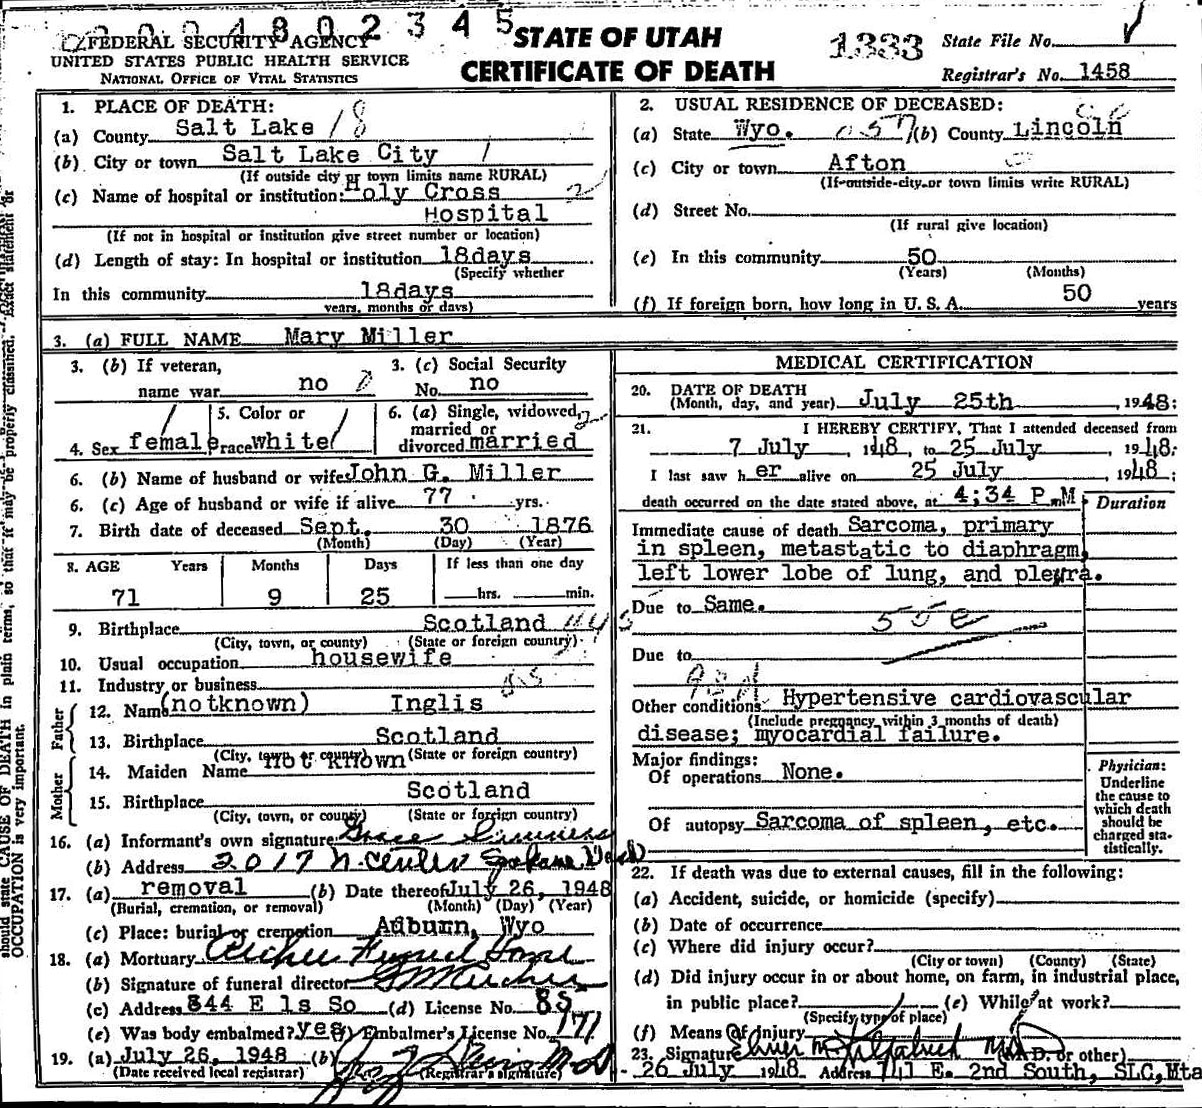 2 3 4 5
FEDERAL SECURITY AGENCY
UNITED STATES PUBLIC HEALTH SERVICE
NATIONAL OFFICE OF VITAL STATISTICS
STATE OF UTAH
CERTIFICATE OF DEATH
1333
State File No.
Registrar's No. 1458
1. PLACE OF DEATH:
(a) County Salt Lake 18
(b) City or town Salt Lake City 1
(If outside city or town limits name RURAL)
(c) Name of hospital or institution: Holy Cross 2
Hospital
(If not in hospital or institution give street number or location)
(d) Length of stay: In hospital or institution 18days
(Specify whether
In this community 18days
years, months or days)
2. USUAL RESIDENCE OF DECEASED:
(a) State Wyo. 057 (b) County Lincoln
(c) City or town Afton
(If outside city or town limits write RURAL)
(d) Street No.
(If rural give location)
(e) In this community 50
(Years) (Months)
(f) If foreign born, how long in U. S. A. 50 years
3. (a) FULL NAME Mary Miller
3. (b) If veteran,
name war no
3. (c) Social Security
No. no
4. Sex female
5. Color or
race white
6. (a) Single, widowed,
married or
divorced married
6. (b) Name of husband or wife John G. Miller
6. (c) Age of husband or wife if alive 77 yrs.
7. Birth date of deceased Sept. 30 1876
(Month) (Day) (Year)
8. AGE Years Months Days If less than one day
71 9 25 hrs. min.
9. Birthplace Scotland
(City, town, or county) (State or foreign country)
10. Usual occupation housewife
11. Industry or business
Father
12. Name (notknown) Inglis
13. Birthplace Scotland
(City, town, or county) (State or foreign country)
Mother
14. Maiden Name not known
15. Birthplace Scotland
(City, town, or county) (State or foreign country)
16. (a) Informant's own signature Grace
(b) Address 2017 N. Center Spokane Wash
17. (a) removal (b) Date thereof July 26, 1948
(Burial, cremation, or removal) (Month) (Day) (Year)
(c) Place: burial or cremation Auburn, Wyo
18. (a) Mortuary Archer Funeral Home
(b) Signature of funeral director Archer
(c) Address 844 E 1s So (d) License No. 85
(e) Was body embalmed? yes (f) Embalmer's License No. 171
19. (a) July 26, 1948 (b)
(Date received local registrar) (Registrar's signature)
MEDICAL CERTIFICATION
20. DATE OF DEATH
(Month, day, and year) July 25th, 1948:
21. I HEREBY CERTIFY, That I attended deceased from
7 July, 1948, to 25 July, 1948:
I last saw her alive on 25 July, 1948;
death occurred on the date stated above, at 4;34 P.M.
Duration
Immediate cause of death Sarcoma, primary
in spleen, metastatic to diaphragm,
left lower lobe of lung, and pleura.
Due to Same.
Due to
Other conditions Hypertensive cardiovascular
(Include pregnancy within 3 months of death)
disease; myocardial failure.
Major findings:
Of operations None.
Of autopsy Sarcoma of spleen, etc.
Physician:
Underline
the cause to
which death
should be
charged sta-
tistically.
22. If death was due to external causes, fill in the following:
(a) Accident, suicide, or homicide (specify)
(b) Date of occurrence
(c) Where did injury occur?
(City or town) (County) (State)
(d) Did injury occur in or about home, on farm, in industrial place,
in public place? (e) While at work?
(Specify type of place)
(f) Means of Injury
23. Signature (M. D. or other)
26 July 1948. Address 741 E. 2nd South, SLC, Uta
should state CAUSE OF DEATH in plain terms, so that it may be properly classified. Exact statement of
OCCUPATION is very important.